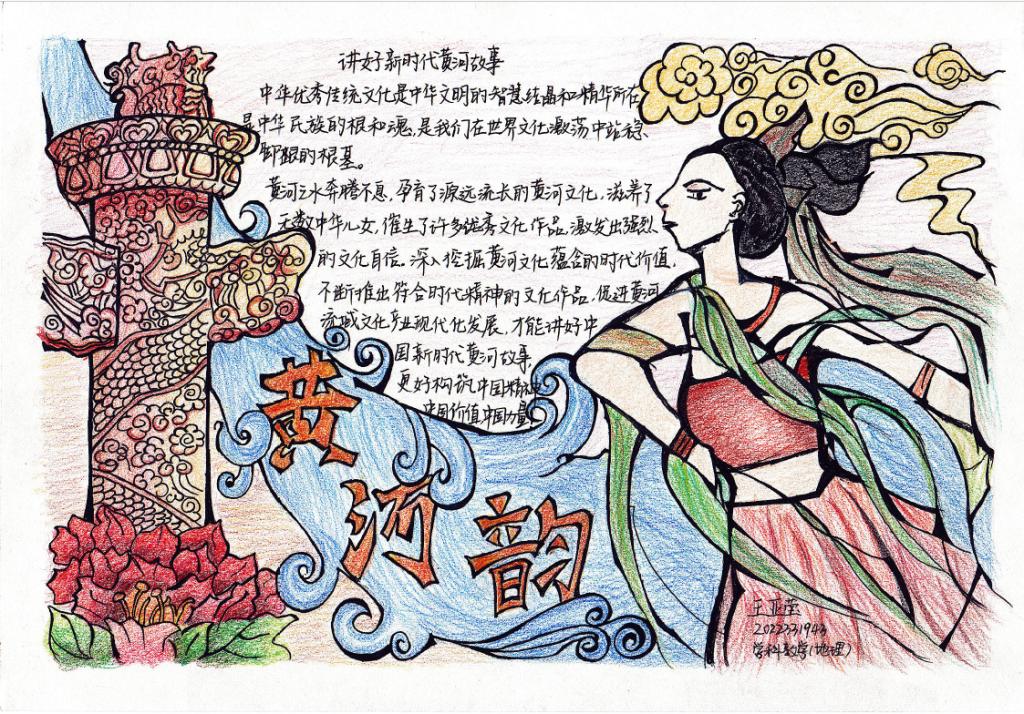 讲好新时代黄河故事
中华优秀传统文化是中华文明的智慧结晶和精华所在
是中华民族的根和魂,是我们在世界文化激荡中站稳
脚跟的根基。
黄河之水奔腾不息,孕育了源远流长的黄河文化,滋养了
无数中华儿女,催生了许多优秀文化作品,激发出强烈
的文化自信。深入挖掘黄河文化蕴含的时代价值,
不断推出符合时代精神的文化作品,促进黄河
流域文化产业现代化发展,才能讲好中
国新时代黄河故事
更好构筑中国精神
中国价值中国力量
黄
河
韵
王亚莹
2022331943
学科教学(地理)